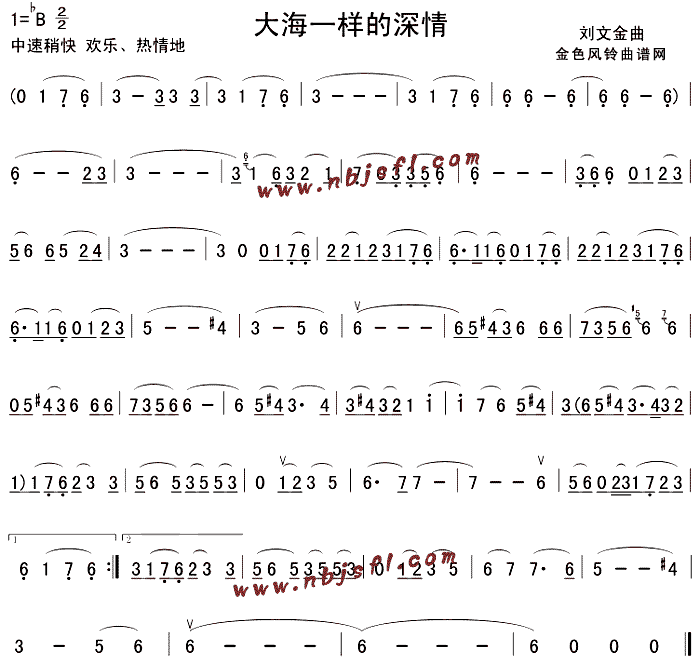 1=♭B 2/2
大海一样的深情
中速稍快 欢乐、热情地
刘文金曲
金色风铃曲谱网
(0 1 7 6 | 3 - 33 3 | 3 1 7 6 | 3 - - - | 3 1 7 6 | 6 6 - 6 | 6 6 - 6) |
6 - - 23 | 3 - - - | 31 632 1 | 7 03356 | 6 - - - | 366 0123 |
www.nbjsfl.com
56 65 24 | 3 - - - | 3 0 0176 | 22123176 | 6·1160176 | 22123176 |
6·1160123 | 5 - - #4 | 3 - 5 6 | 6 - - - | 65#436 66 | 7356 6 6 |
05#436 66 | 73566 6 - | 6 5#43· 4 | 3#4321 i | i 7 6 5#4 | 3(65#43·432 |
1)17623 3 | 56 53553 | 0 123 5 | 6· 77 - | 7 - - 6 | 560231723 |
1. 2.
6 1 7 6 :| 317623 3 | 56 53553 | 0 123 5 | 67 7· 6 | 5 - - #4 |
www.nbjsfl.com
3 - 5 6 | 6 - - - | 6 - - - | 6 0 0 0 ‖